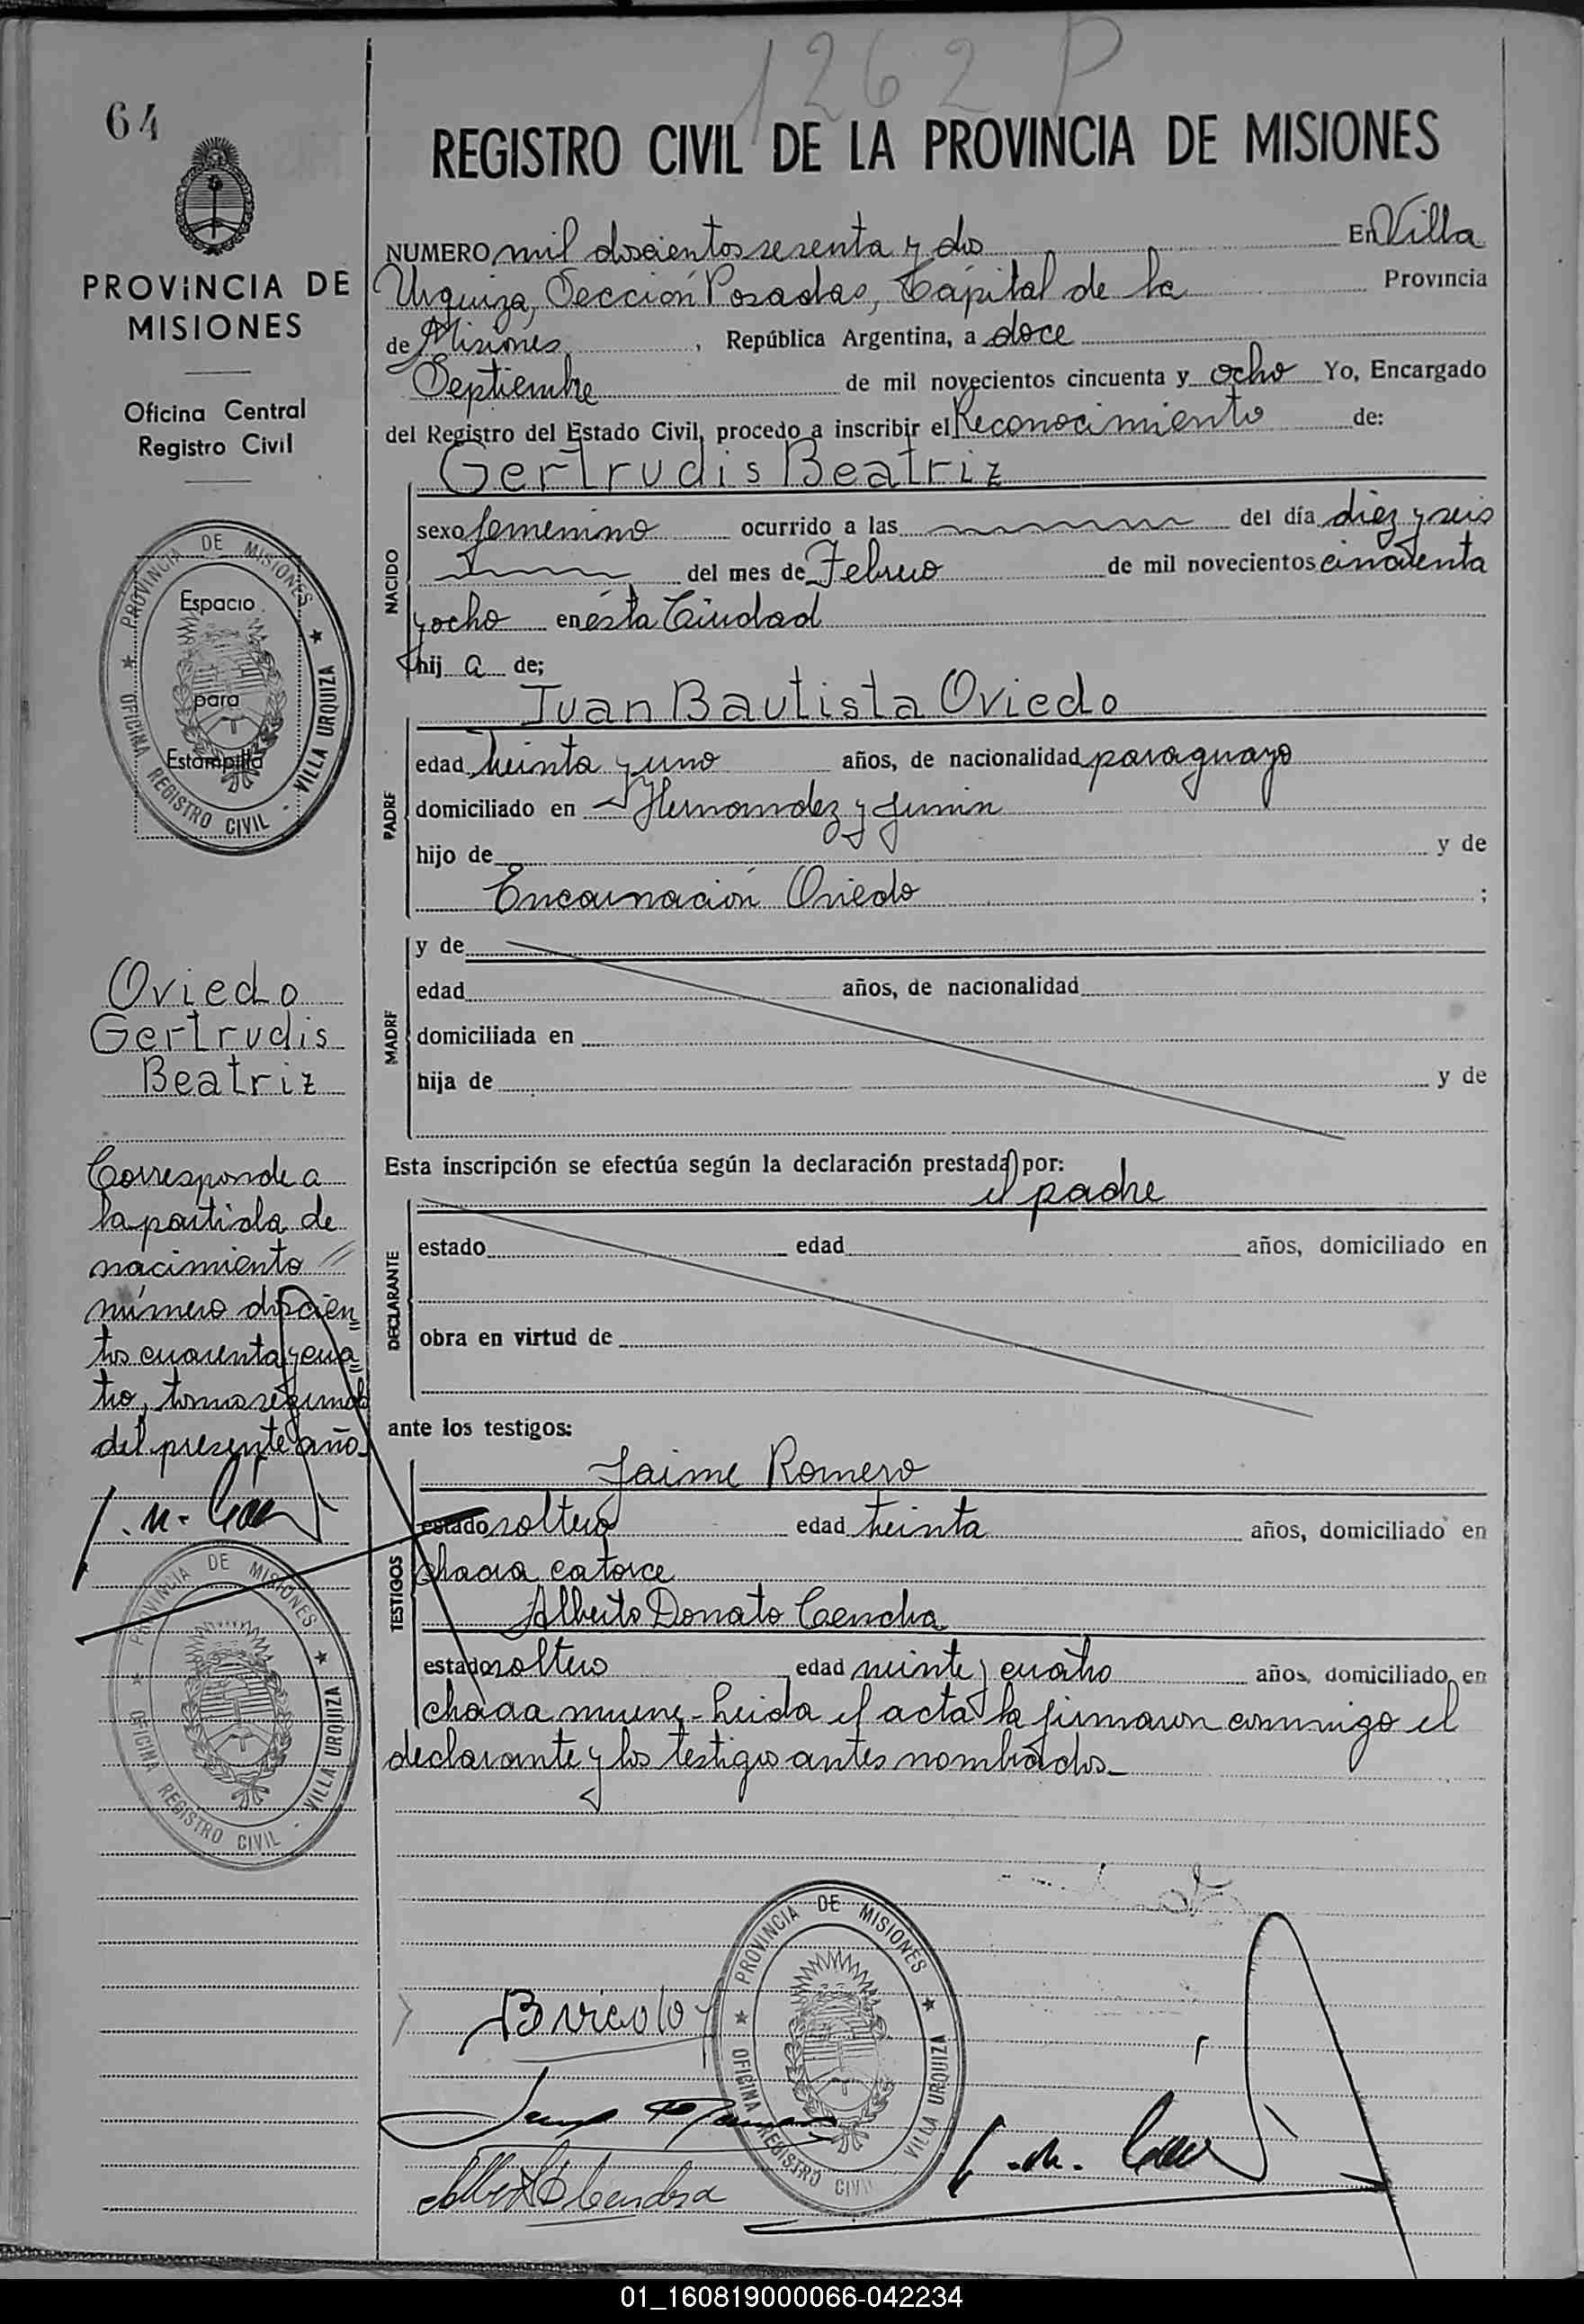 1262 P
64
REGISTRO CIVIL DE LA PROVINCIA DE MISIONES
PROVINCIA DE
MISIONES
Oficina Central
Registro Civil
PROVINCIA DE MISIONES
OFICINA REGISTRO CIVIL - VILLA URQUIZA
Espacio
para
Estampilla
NUMERO mil doscientos sesenta y dos En Villa
Urquiza, Sección Posadas, Cápital de la Provincia
de Misiones, República Argentina, a doce
Septiembre de mil novecientos cincuenta y ocho Yo, Encargado
del Registro del Estado Civil, procedo a inscribir el Reconocimiento de:
Gertrudis Beatriz
NACIDO
sexo femenino ocurrido a las del día diez y seis
del mes de Febrero de mil novecientos cincuenta
y ocho en ésta Ciudad
hij a de;
Juan Bautista Oviedo
PADRE
edad treinta y uno años, de nacionalidad paraguayo
domiciliado en Hernandez y Junin
hijo de y de
Encarnación Oviedo ;
MADRE
y de
edad años, de nacionalidad
domiciliada en
hija de y de
Esta inscripción se efectúa según la declaración prestada por:
el padre
DECLARANTE
estado edad años, domiciliado en
obra en virtud de
ante los testigos:
Jaime Romero
TESTIGOS
estado soltero edad treinta años, domiciliado en
chacra catorce
Alberto Donato Cendra
estado soltero edad veinte y cuatro años, domiciliado en
chacra nueve - Leida el acta la firmaron conmigo el
declarante y los testigos antes nombrados.-
Oviedo
Gertrudis
Beatriz
Corresponde a
la partida de
nacimiento
número doscien
tos cuarenta y cua
tro, tomo segundo
del presente año.-
PROVINCIA DE MISIONES
OFICINA REGISTRO CIVIL - VILLA URQUIZA
PROVINCIA DE MISIONES
OFICINA REGISTRO CIVIL VILLA URQUIZA
01_160819000066-042234